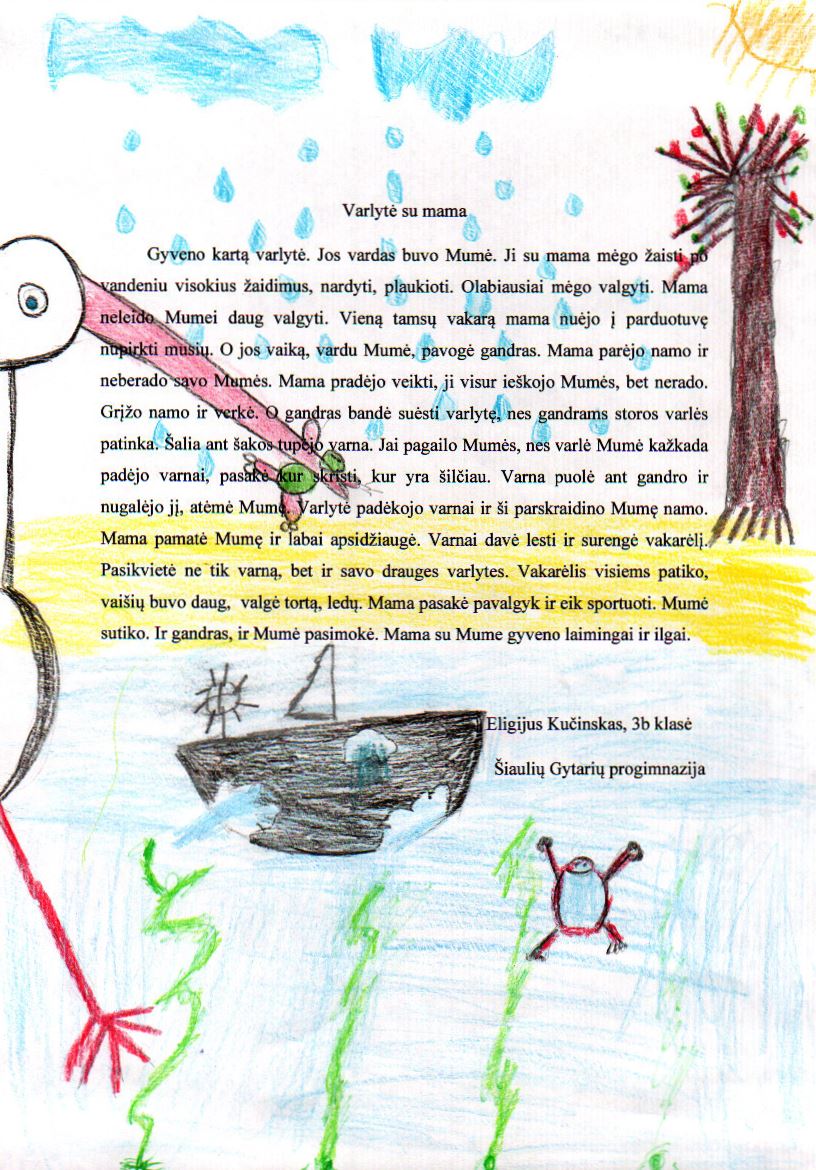 Varlytė su mama
Gyveno kartą varlytė. Jos vardas buvo Mumė. Ji su mama mėgo žaisti po
vandeniu visokius žaidimus, nardyti, plaukioti. Olabiausiai mėgo valgyti. Mama
neleido Mumei daug valgyti. Vieną tamsų vakarą mama nuėjo į parduotuvę
nupirkti musių. O jos vaiką, vardu Mumė, pavogė gandras. Mama parėjo namo ir
neberado savo Mumės. Mama pradėjo veikti, ji visur ieškojo Mumės, bet nerado.
Grįžo namo ir verkė. O gandras bandė suėsti varlytę, nes gandrams storos varlės
patinka. Šalia ant šakos tupėjo varna. Jai pagailo Mumės, nes varlė Mumė kažkada
padėjo varnai, pasakė kur skristi, kur yra šilčiau. Varna puolė ant gandro ir
nugalėjo jį, atėmė Mumę. Varlytė padėkojo varnai ir ši parskraidino Mumę namo.
Mama pamatė Mumę ir labai apsidžiaugė. Varnai davė lesti ir surengė vakarėlį.
Pasikvietė ne tik varną, bet ir savo drauges varlytes. Vakarėlis visiems patiko,
vaišių buvo daug, valgė tortą, ledų. Mama pasakė pavalgyk ir eik sportuoti. Mumė
sutiko. Ir gandras, ir Mumė pasimokė. Mama su Mume gyveno laimingai ir ilgai.
Eligijus Kučinskas, 3b klasė
Šiaulių Gytarių progimnazija